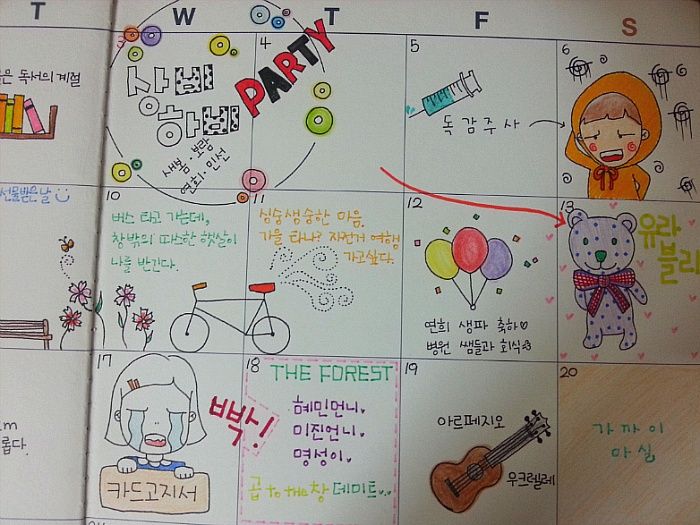 T W T F S
독서의계절
3
새봄·보람
연희·민선
4
PARTY
5
독감주사
6
선물받은날
10
버스 타고 가는데,
창밖의 따스한 햇살이
나를 반긴다.
11
싱숭생숭한 마음.
가을 타나? 자전거 여행
가고싶다.
12
연희 생파 축하
병원 쌤들과 회식
13
유라
블리
m
롭다.
17
카드고지서
18
THE FOREST
혜민언니
미진언니
명성이
곱 to the 창 데이트..
19
아르페지오
우크렐레
20
가까이
마실